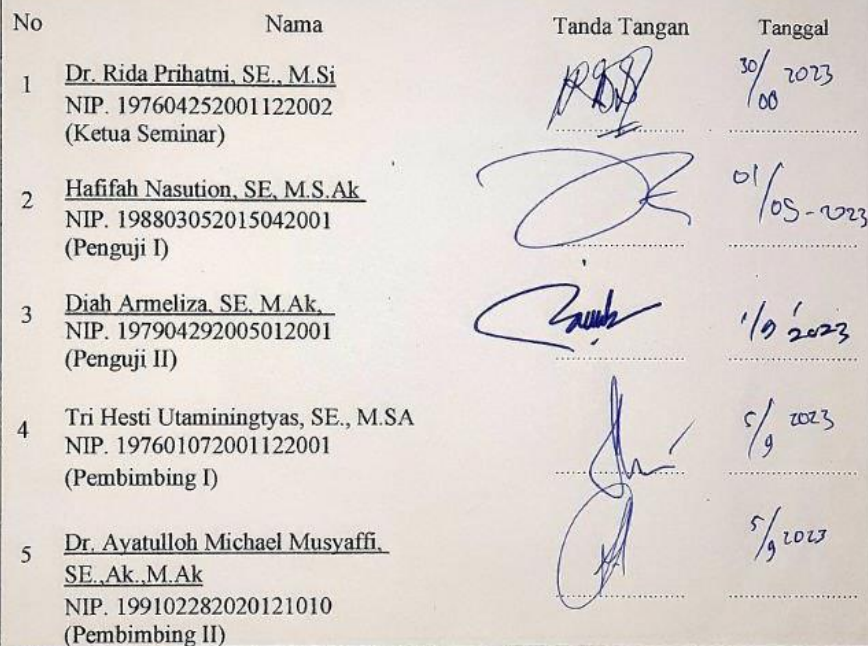 No Nama Tanda Tangan Tanggal
1 Dr. Rida Prihatni, SE., M.Si
NIP. 197604252001122002
(Ketua Seminar)
30/08 2023
2 Hafifah Nasution, SE, M.S.Ak
NIP. 198803052015042001
(Penguji I)
01/09-2023
3 Diah Armeliza, SE, M.Ak,
NIP. 197904292005012001
(Penguji II)
1/9 2023
4 Tri Hesti Utaminingtyas, SE., M.SA
NIP. 197601072001122001
(Pembimbing I)
5/9 2023
5 Dr. Ayatulloh Michael Musyaffi,
SE.,Ak.,M.Ak
NIP. 199102282020121010
(Pembimbing II)
5/9 2023